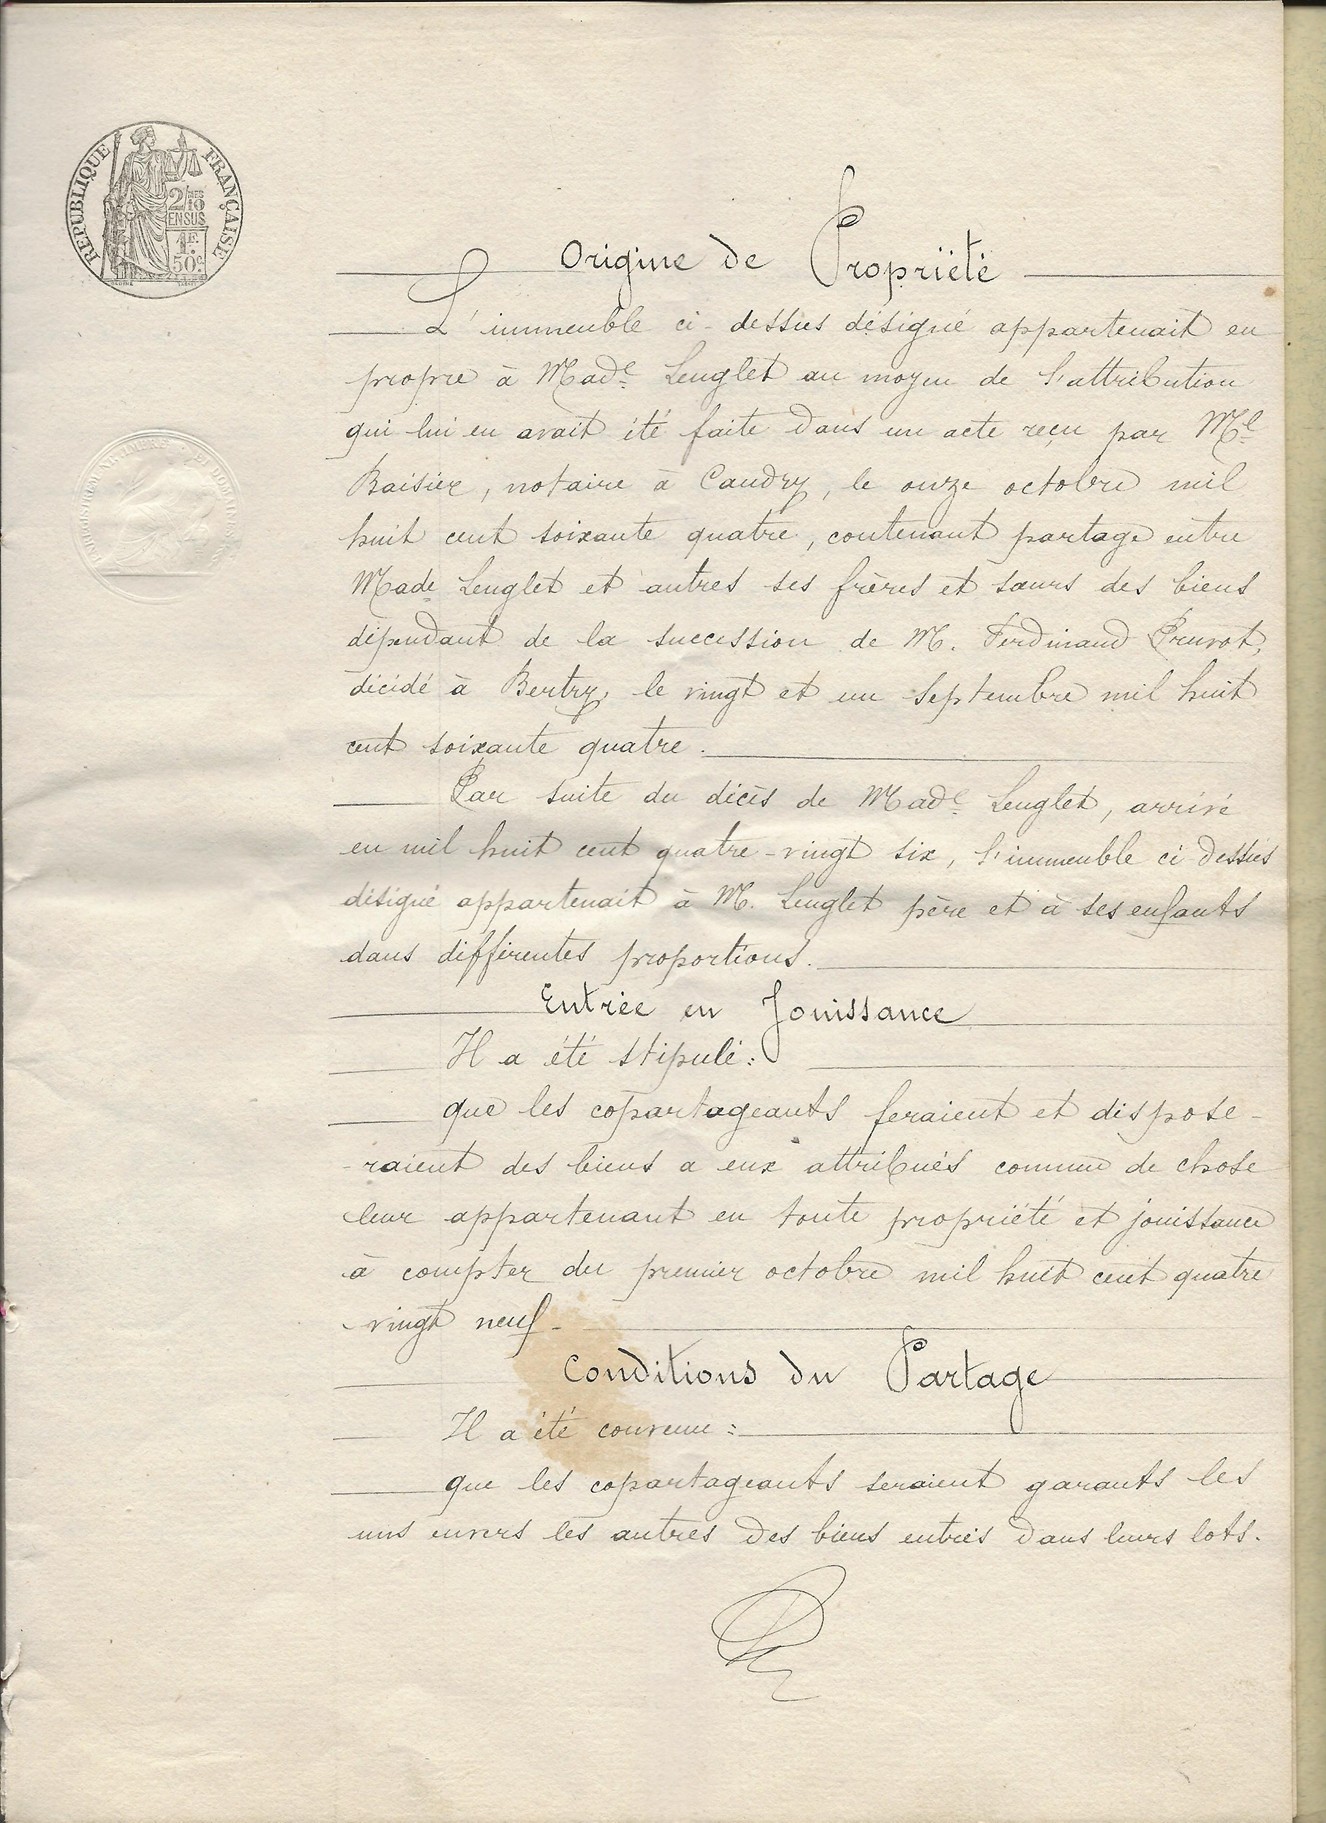 RÉPUBLIQUE FRANÇAISE
2/10 MES
EN SUS
1F.
50c
Origine de Propriété
L'immeuble ci-dessus désigné appartenait en
propre à Made Lenglet au moyen de l'attribution
qui lui en avait été faite dans un acte reçu par Me
Baisier, notaire à Caudry, le onze octobre mil
huit cent soixante quatre, contenant partage entre
Made Lenglet et autres ses frères et sœurs des biens
dépendant de la succession de M. Ferdinand Pruvot,
décédé à Bertry, le vingt et un septembre mil huit
cent soixante quatre.
Par suite du décès de Made Lenglet, arrivé
en mil huit cent quatre-vingt six, l'immeuble ci dessus
désigné appartenait à M. Lenglet père et à ses enfants
dans différentes proportions.
Entrée en Jouissance
Il a été stipulé:
que les copartageants feraient et dispose-
-raient des biens a eux attribués comme de chose
leur appartenant en toute propriété et jouissance
à compter du premier octobre mil huit cent quatre
vingt neuf.
Conditions du Partage
Il a été convenu:
que les copartageants seraient garants les
uns envers les autres des biens entrés dans leurs lots.